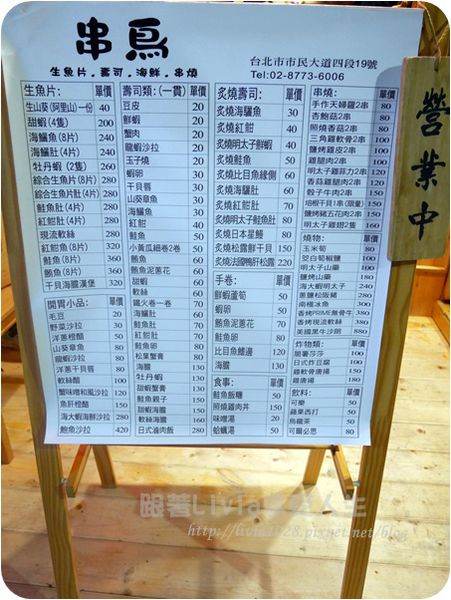 串鳥
生魚片.壽司.海鮮.串燒
台北市市民大道四段19號
Tel:02-8773-6006
營業中
生魚片: 單價
生山葵(阿里山)一份 40
甜蝦(4隻) 200
海鱺魚(8片) 240
海鱺肚(4片) 240
牡丹蝦(2隻) 260
綜合生魚片(8片) 280
綜合生魚片肚(4片) 280
鮭魚肚(4片) 280
紅魽肚(4片) 280
現流軟絲 280
紅魽魚(8片) 320
鮭魚(8片) 360
鮪魚(8片) 360
干貝海膽漢堡 320
開胃小品: 單價
毛豆 20
野菜沙拉 30
洋蔥橙醋 50
山葵章魚 80
龍蝦沙拉 80
洋蔥干貝唇 80
軟絲醋 100
蟹味噌和風沙拉 120
魚肝橙醋 150
海大蝦海鮮沙拉 280
鮑魚沙拉 420
壽司類:(一貫) 單價
豆皮 20
鮮蝦 20
蟹肉 20
龍蝦沙拉 20
玉子燒 20
蝦卵 20
干貝唇 30
山葵章魚 30
海鱺魚 30
紅魽 40
鮭魚 50
小黃瓜細卷2卷 50
鮪魚 60
鮪魚泥蔥花 60
甜蝦 60
軟絲 60
鐵火卷一卷 70
海鱺肚 60
鮭魚肚 70
紅魽肚 70
鮭魚卵 80
松葉蟹膏 80
海膽 130
牡丹蝦 130
甜蝦蟹膏 130
鮭魚親子 150
甜蝦海膽 150
軟絲海膽 160
日式滷肉飯 280
炙燒壽司: 單價
炙燒海鱺魚 30
炙燒紅魽 40
炙燒明太子鮮蝦 40
炙燒鮭魚 50
炙燒比目魚緣側 60
炙燒海鱺肚 60
炙燒紅魽肚 70
炙燒明太子鮭魚肚 80
炙燒日本星鰻 80
炙燒松露鮮干貝 150
炙燒法國鴨肝松露 220
手卷: 單價
鮮蝦蘆筍 50
蝦卵 50
鮪魚泥蔥花 70
鮭魚卵 80
比目魚鰭邊 120
海膽 130
食事: 單價
鮭魚飯糰 50
照燒雞肉丼 150
味噌湯 20
蛤蠣湯 50
串燒: 單價
手作天婦羅2串 80
杏鮑菇2串 80
照燒香菇2串 80
三角雞軟骨2串 80
鹽烤雞皮2串 80
雞腿肉2串 100
明太子雞菲力2串 120
香菇雞腿肉2串 120
骰子牛肉2串 180
培根干貝1串(限量) 150
鹽烤豬五花肉2串 150
明太子雞翅2隻 160
燒物: 單價
玉米筍 80
焢白菊椒鹽 100
明太子山藥 150
鹽烤山藥 150
海大蝦明太子 240
蔥鹽松阪豬 280
南極冰魚 280
香烤PRIME無骨牛 380
香烤現流軟絲 380
美國黑牛沙朗 880
炸物類: 單價
脆薯莎莎 100
日式炸豆腐 100
雞軟骨唐揚 150
雞唐揚 180
飲料: 單價
可樂 50
蘋果西打 50
烏龍茶 50
可爾必思 80
跟著Livia
人生
http://livia1028.pixnet.net/blog